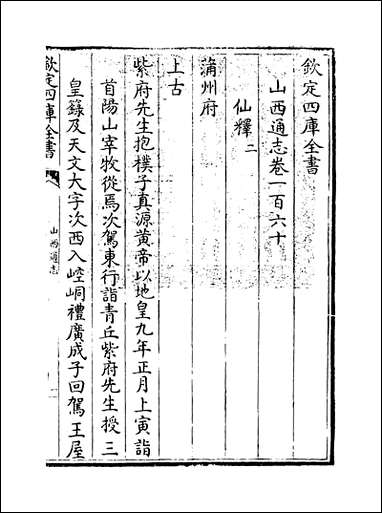 欽定四庫全書
山西通志卷一百六十
仙釋二
蒲州府
上古
紫府先生抱樸子真源黄帝以地皇九年正月上寅詣
首陽山宰牧從焉次駕東行詣青丘紫府先生授三
皇籙及天文大字次西入崆峒禮廣成子回駕王屋
欽定四庫全書
山西通志